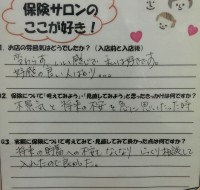 保険サロンの
ここが好き!
01. お店の雰囲気はどうでしたか?(入店前と入店後)
いい感じで
好感の良い人ばかり。。。
02. 保険について「考えてみよう」「見直してみよう」と思ったきっかけは何ですか?
不景気と将来の不安を急に思いった時
03. 実際に保険について考えてみて・見直してみて良かった点は何ですか?
将来の貯蓄への不安がなくなり じっくり相談して
入れたので良かった。